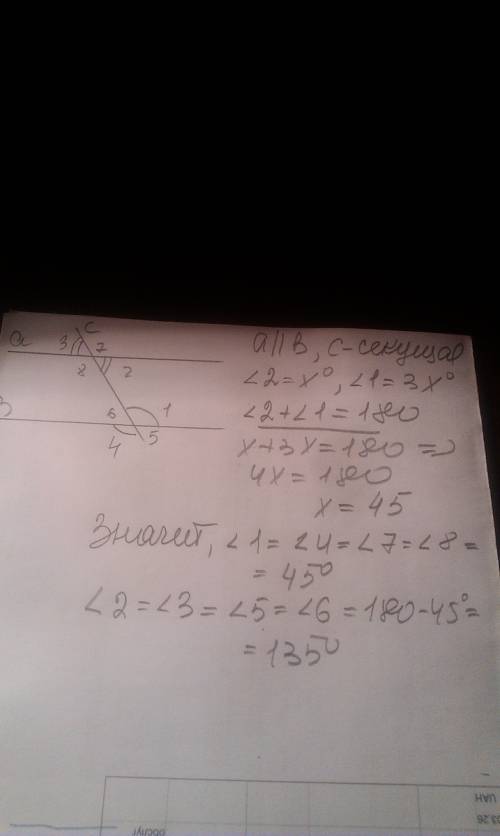 c
a 3 7
8 2
6 1
4 5
a||b, c-секущая
∠2=x°, ∠1=3x°
∠2+∠1=180
x+3x=180 =>
4x=180
x=45
Значит, ∠1=∠4=∠7=∠8=
=45°
∠2=∠3=∠5=∠6=180-45°=
=135°
UAH